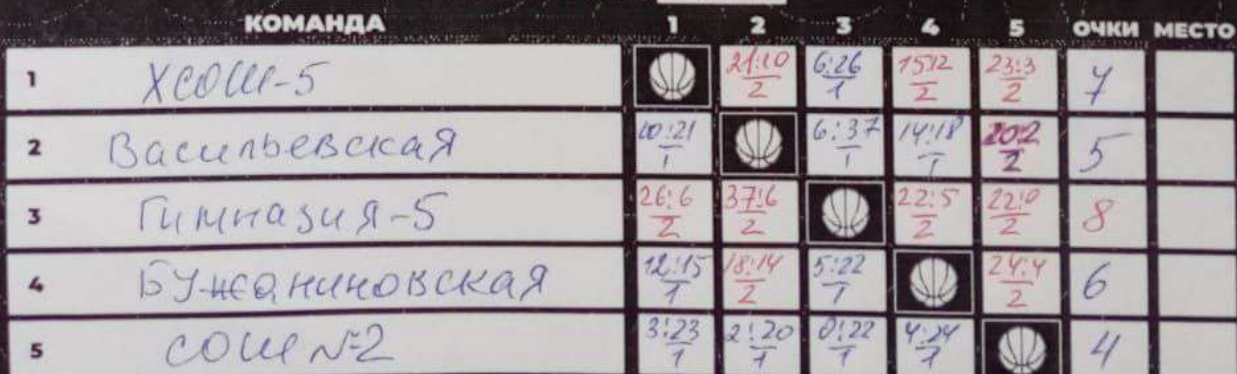 КОМАНДА 1 2 3 4 5 ОЧКИ МЕСТО
1 ХСОШ-5 21:10 2 6:26 1 15:12 2 23:3 2 7
2 Васильевская 10:21 1 6:37 1 14:18 1 20:2 2 5
3 Гимназия-5 26:6 2 37:6 2 22:5 2 22:0 2 8
4 Бужаниновская 12:15 1 18:14 2 5:22 1 24:4 2 6
5 СОШ №2 3:23 1 2:20 1 0:22 1 4:24 1 4